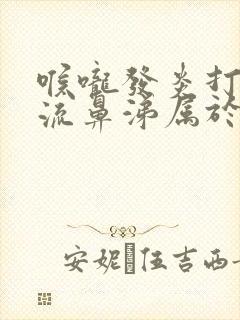 喉嚨發炎打
流鼻涕属於
安妮·伍吉西